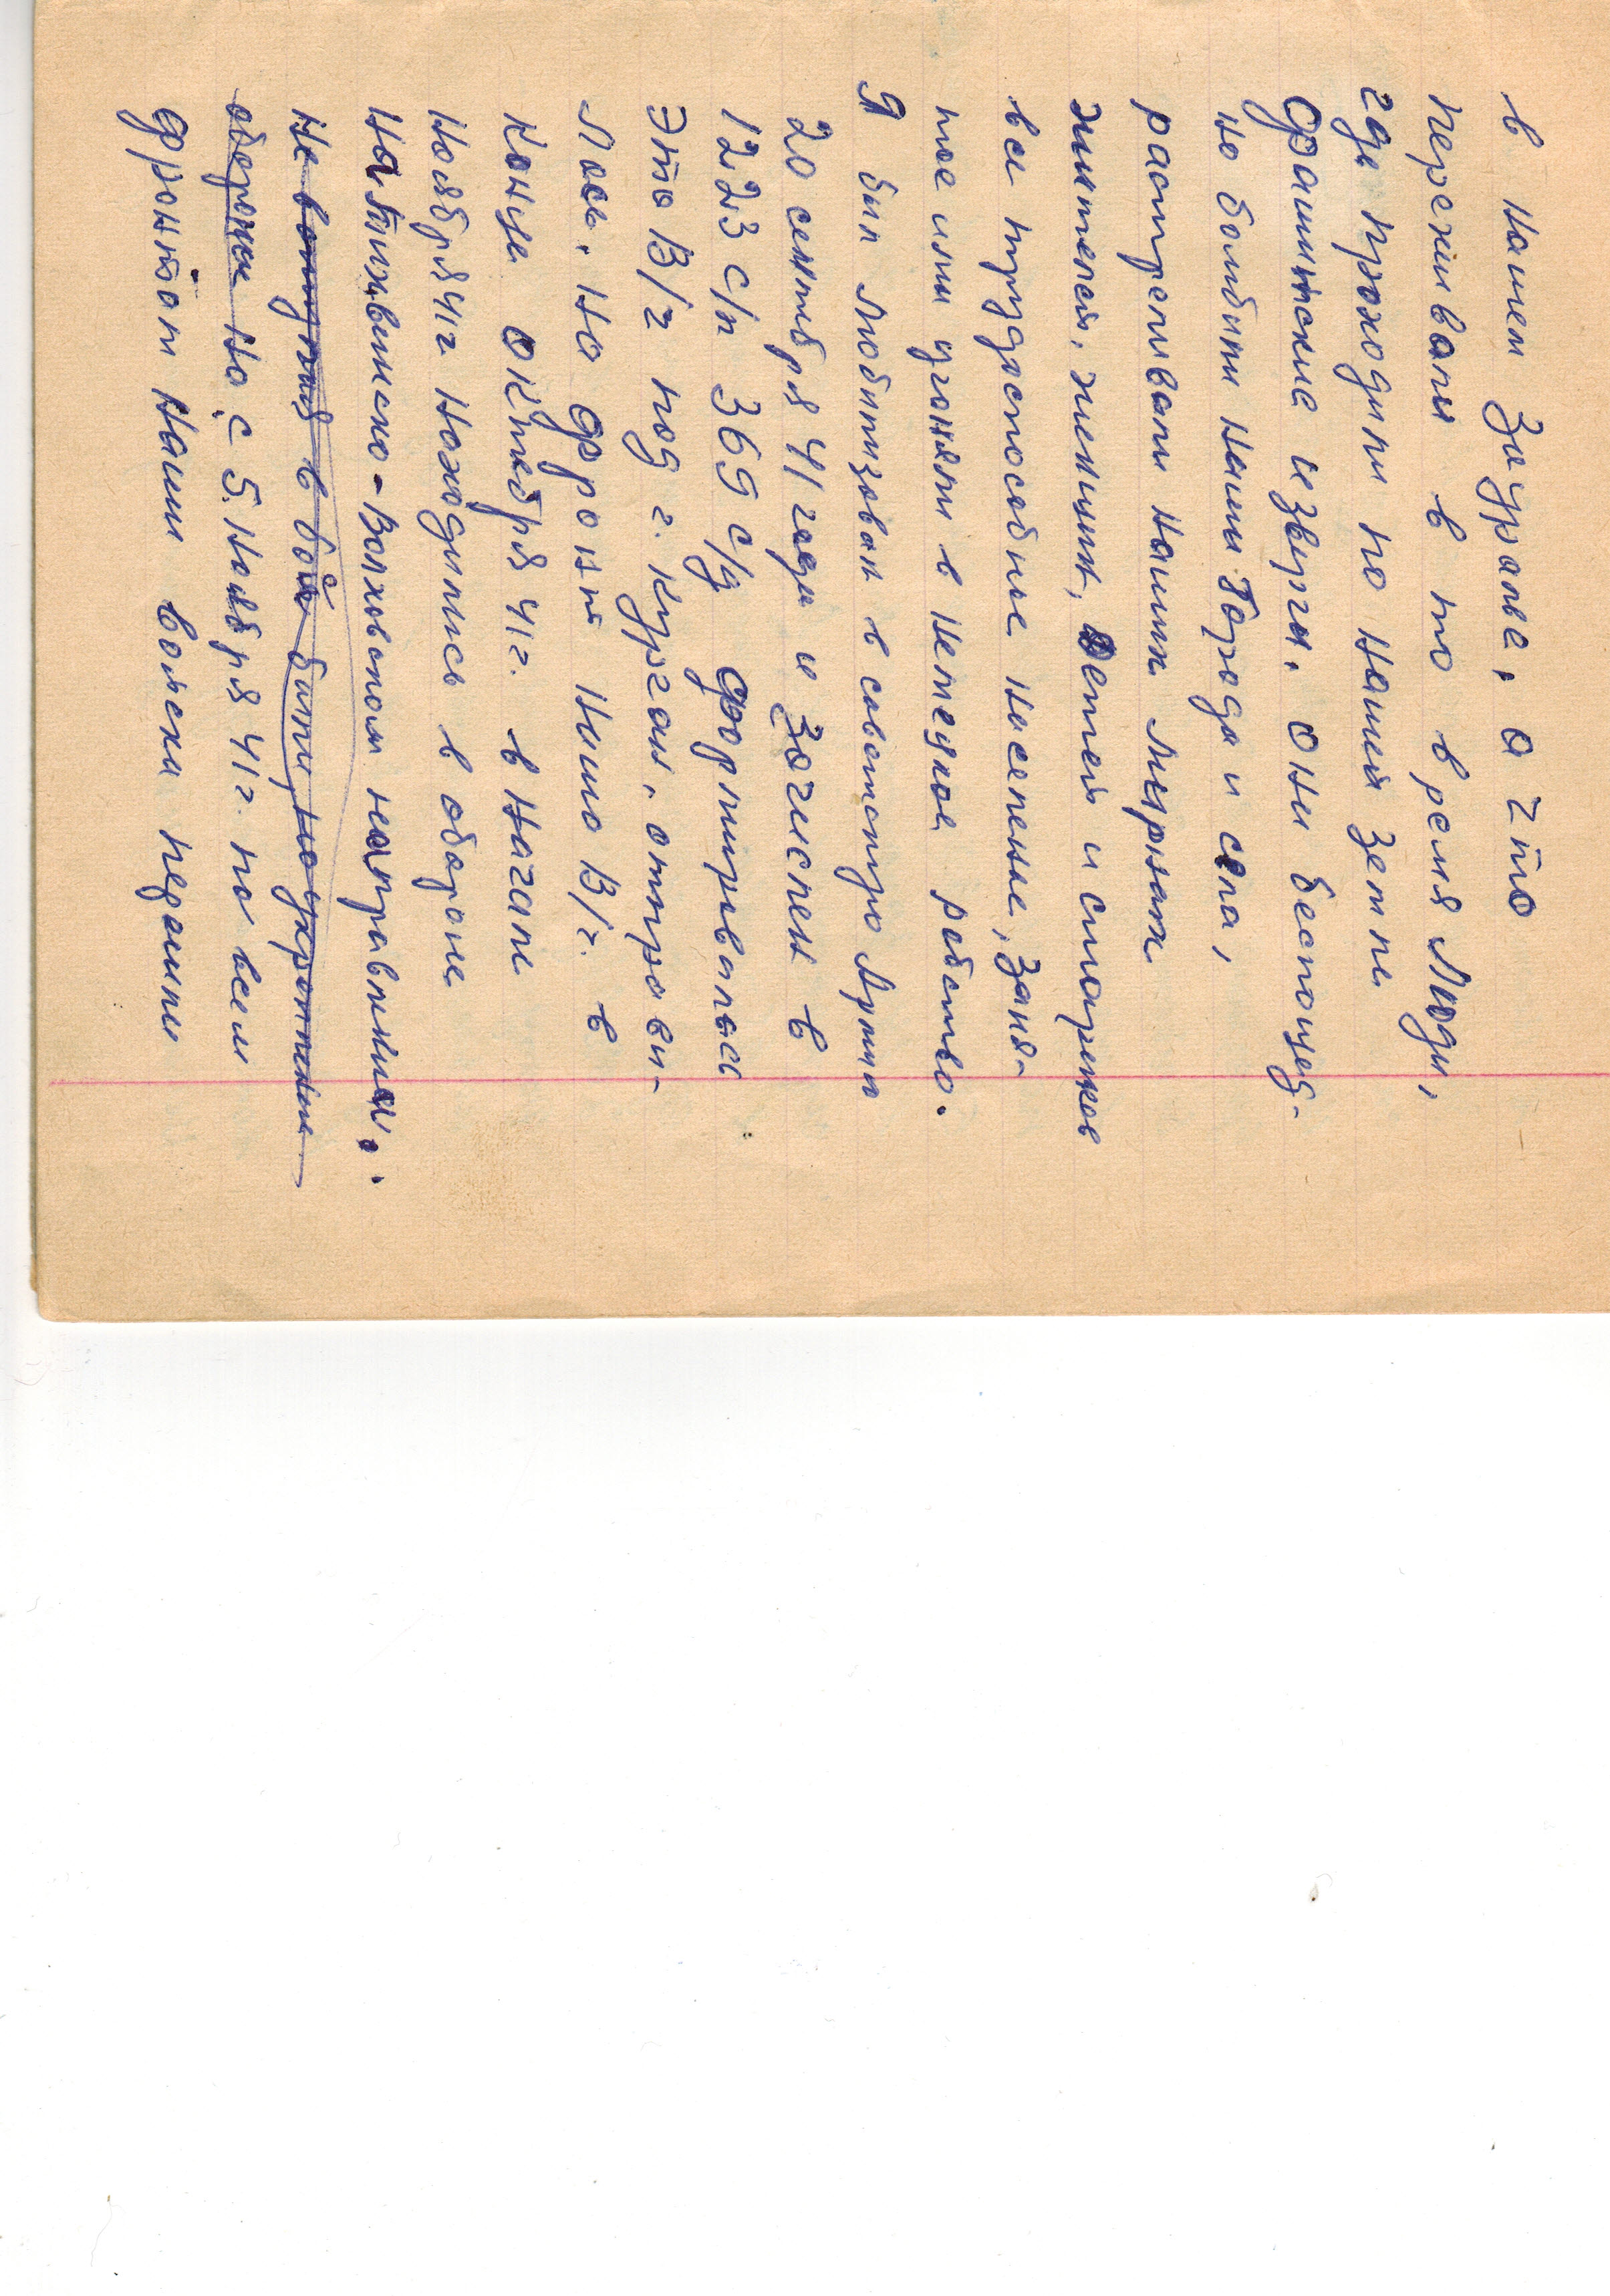 в нашем Зауралье, а что
переживали в то время Люди,
где проходили по нашей земли
Фашиские изверги. Они беспощад-
но бомбили наши Города и сёла,
растреливали наших Мирных
жителей. женщин, детей и стариков
все трудоспособные населенье, заня-
тое или угоняли в немецкое рабство.
Я был Мобилизован в советскую Армию
20 сентября 41 года и зачислен в
1223 с/п 369 с/д формировалась
Это В/ч под г. Курган. отправи-
лась. На Фронт наша В/ч. в
конце Октября 41г. в начале
Ноября 41г Находились в обороне
На Тихвинско-Волховском направлении.
Не вступая в бой были, но укрепленни
обороны Но с 5. Ноября 41г. по всем
Фронтом Наши войска педашли